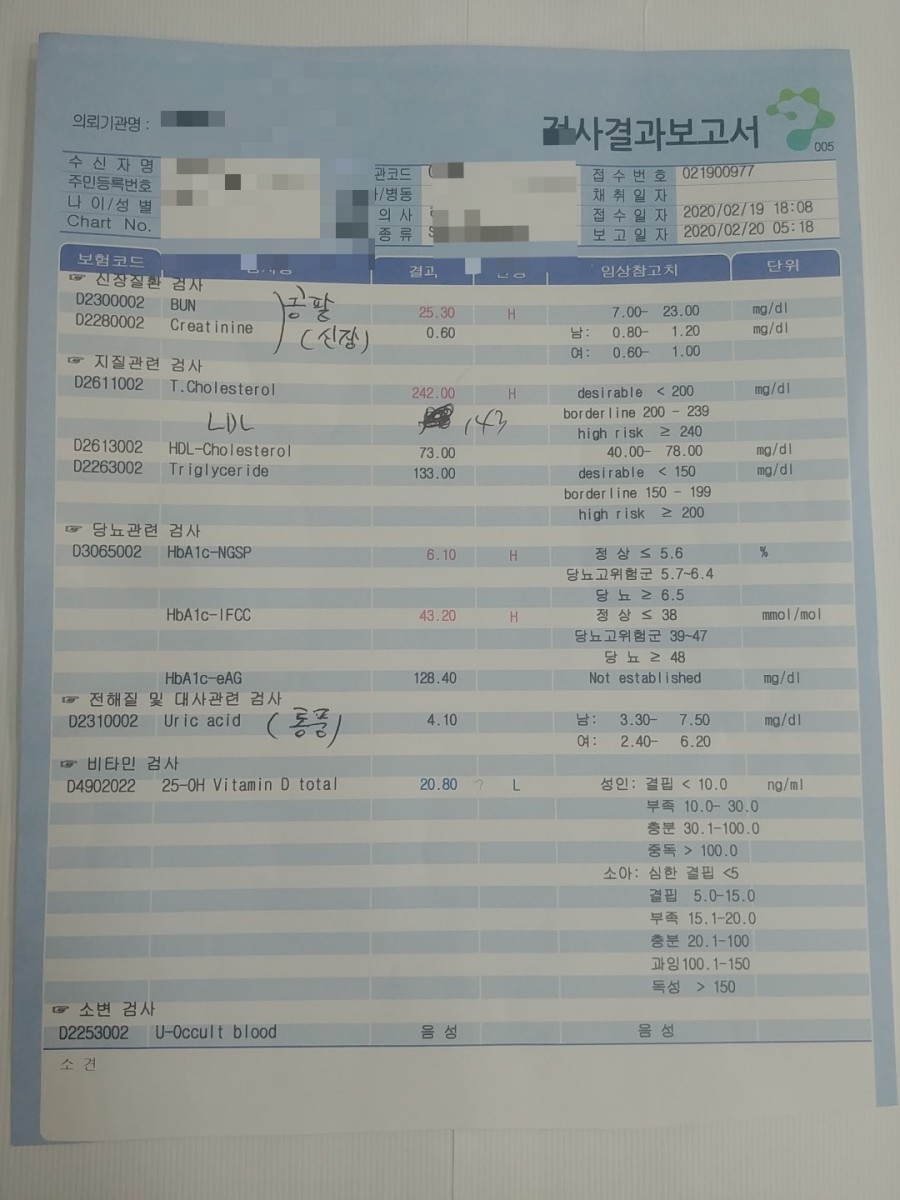 의뢰기관명 :
검사결과보고서
005
수 신 자 명
주민등록번호
나 이/성 별
Chart No.
관코드
/병동
의 사
종 류
접 수 번 호 021900977
채 취 일 자
접 수 일 자 2020/02/19 18:08
보 고 일 자 2020/02/20 05:18
보험코드 결과 임상참고치 단위
☞ 신장질환 검사
D2300002 BUN 25.30 H 7.00- 23.00 mg/dl
콩팥
D2280002 Creatinine 0.60 남: 0.80- 1.20 mg/dl
(신장)
여: 0.60- 1.00
☞ 지질관련 검사
D2611002 T.Cholesterol 242.00 H desirable < 200 mg/dl
LDL 143 borderline 200 - 239
high risk ≥ 240
D2613002 HDL-Cholesterol 73.00 40.00- 78.00 mg/dl
D2263002 Triglyceride 133.00 desirable < 150 mg/dl
borderline 150 - 199
high risk ≥ 200
☞ 당뇨관련 검사
D3065002 HbA1c-NGSP 6.10 H 정 상 ≤ 5.6 %
당뇨고위험군 5.7~6.4
당 뇨 ≥ 6.5
HbA1c-IFCC 43.20 H 정 상 ≤ 38 mmol/mol
당뇨고위험군 39~47
당 뇨 ≥ 48
HbA1c-eAG 128.40 Not established mg/dl
☞ 전해질 및 대사관련 검사
D2310002 Uric acid (통풍) 4.10 남: 3.30- 7.50 mg/dl
여: 2.40- 6.20
☞ 비타민 검사
D4902022 25-OH Vitamin D total 20.80 ? L 성인: 결핍 < 10.0 ng/ml
부족 10.0- 30.0
충분 30.1-100.0
중독 > 100.0
소아: 심한 결핍 <5
결핍 5.0-15.0
부족 15.1-20.0
충분 20.1-100
과잉100.1-150
독성 > 150
☞ 소변 검사
D2253002 U-Occult blood 음 성 음 성
소 견